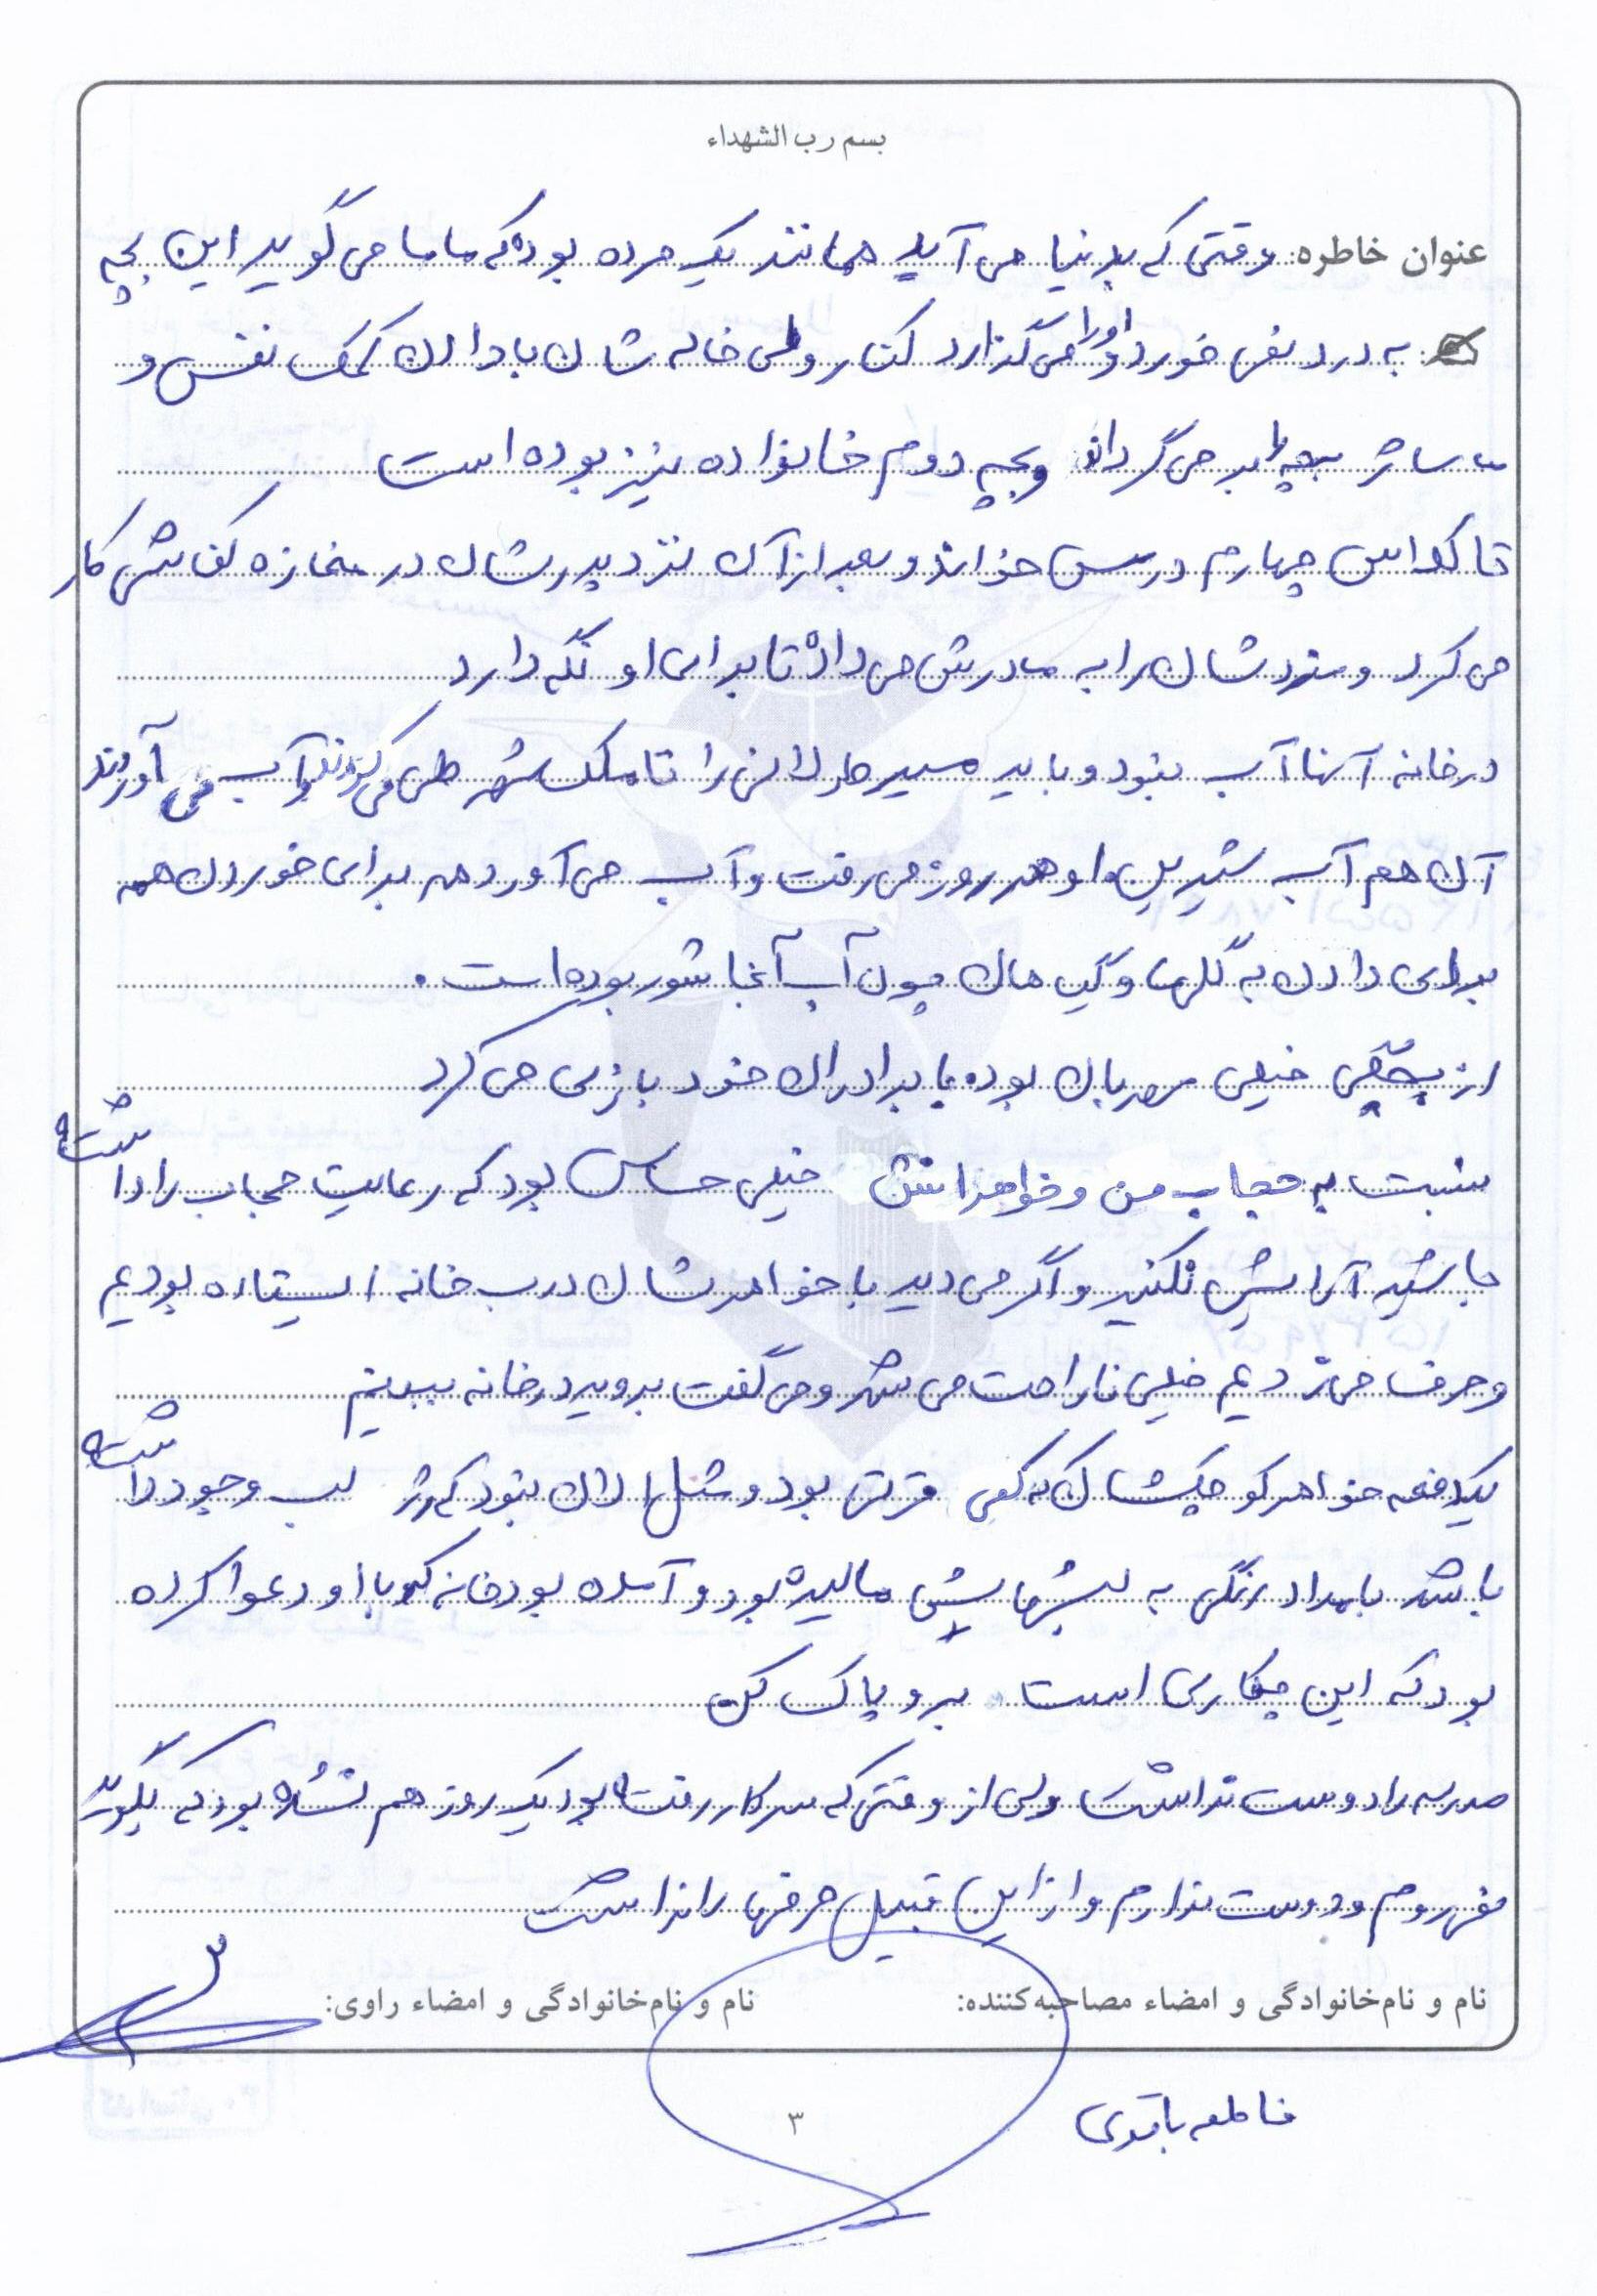 بسم رب الشهداء
عنوان خاطره: وقتی که بدنیا می آید همانند یک مرده بوده که ماما می گوید این بچه
به درد نمی خورد و او را می گذارد کنار ولی خاله شان با دادن کمک نفس و
ماساژ بچه را بر می گرداند و بچه دوم خانواده نیز بوده است
تا کلاس چهارم درس خواند و بعد از آن نزد پدرشان در مغازه کفاشی کار
می کرد و مزدشان را به مادرش می داد تا برای او نگه دارد
در خانه آنها آب نبود و باید مسیر طولانی را تا ملک شهر طی می کردند و آب می آوردند
آن هم آب شیرین و او هر روز می رفت و آب می آورد هم برای خوردن هم
برای دادن به گلها و گیاهان چون آب آنجا شور بوده است.
از بچگی خیلی مهربان بوده با برادران خود بازی می کرد
نسبت به حجاب من و خواهرانش خیلی حساس بود که رعایت حجاب را داشته
باشید آرایش نکنید و اگر می دید با خواهرشان درب خانه ایستاده بودیم
و حرف می زدیم خیلی ناراحت می شد و می گفت بروید در خانه ببینم
یکدفعه خواهر کوچکشان که کمی قرتی بود و مثل الان نبود که رژ لب وجود داشته
باشد با مداد رنگی به لبهایش مالیده بود و آمده بود خانه که با او دعوا کرده
بود که این چکاری است برو پاک کن
مدرسه را دوست نداشت ولی از وقتی که سر کار رفته بود یک روز هم نشده بود که بگوید
نمی روم و دوست ندارم و از این قبیل حرفها را نداشت
نام و نام‌خانوادگی و امضاء مصاحبه‌کننده:
نام و نام‌خانوادگی و امضاء راوی:
فاطمه باقری
۳